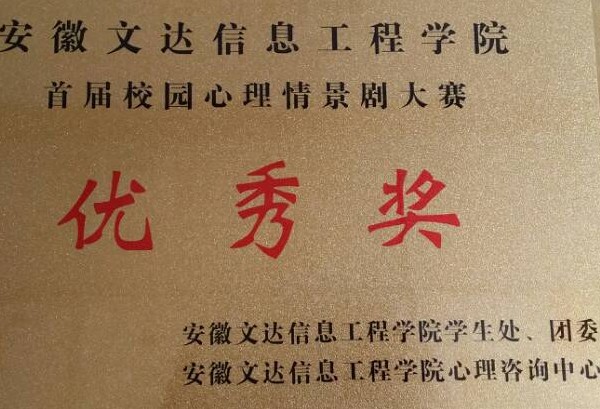 安徽文达信息工程学院
首届校园心理情景剧大赛
优秀奖
安徽文达信息工程学院学生处、团委
安徽文达信息工程学院心理咨询中心